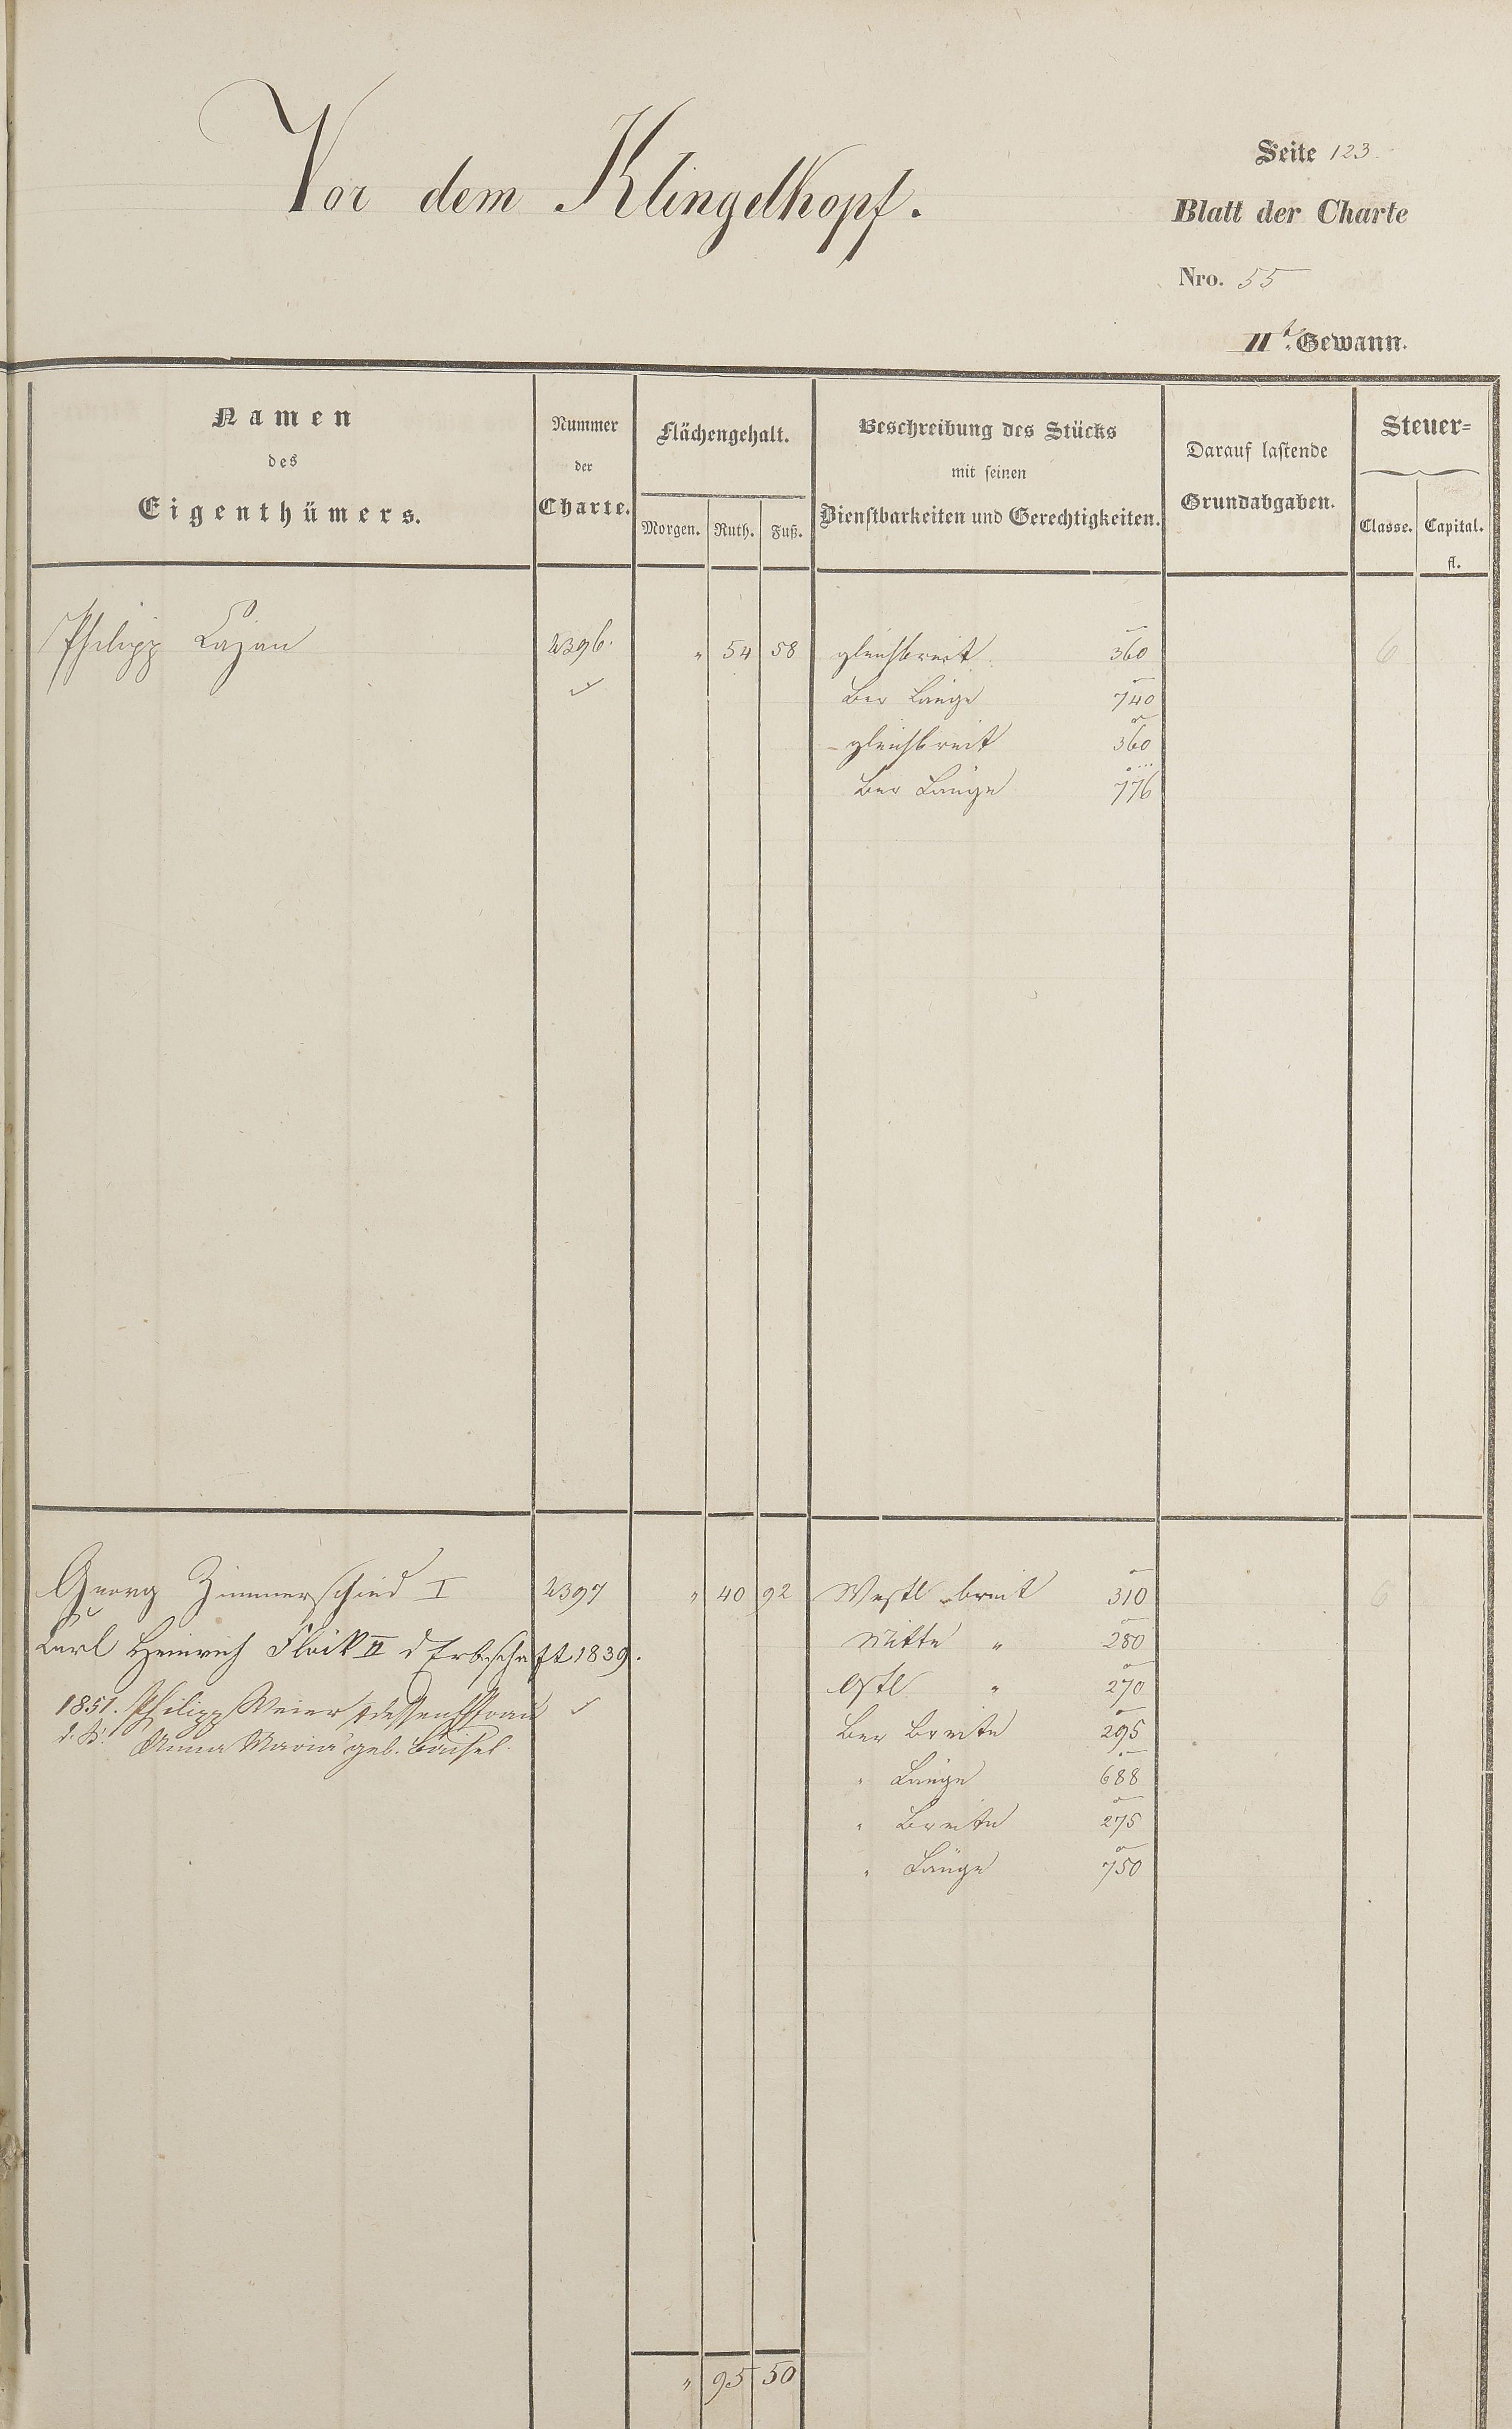 Vor dem Klingelkopf.
Seite 123.
Blatt der Charte
Nro. 55
IIt. Gewann.
Namen
des
Eigenthümers.
Nummer
der
Charte.
Flächengehalt.
Morgen. Ruth. Fuß.
Beschreibung des Stücks
mit seinen
Dienstbarkeiten und Gerechtigkeiten.
Darauf lastende
Grundabgaben.
Steuer=
Classe. Capital.
fl.
Philipp Lazan 2396. " 54 58 gleichbreit 360 6
Ber Länge 740
gleichbreit 360
Ber Länge 776
Georg Zimmerschied I 2397 " 40 92 Westl breit 310 6
Carl Heinrich Flöck II d Erbschaft 1839. Mitte " 280
Ostl " 270
1851. Philipp Meier & dessen Frau Ber Breite 295
Anna Maria geb.
" Länge 688
" Breite 275
" Länge 750
" 95 50